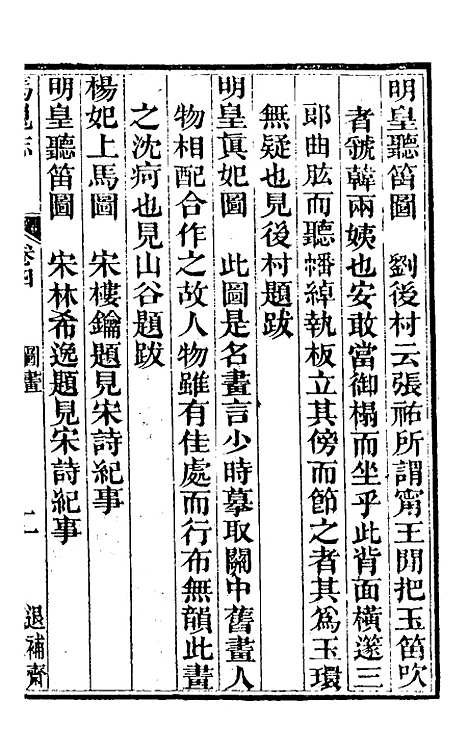 明皇聽笛圖　劉後村云張祐所謂甯王閒把玉笛吹
者虢韓兩姨也安敢當御榻而坐乎此背面橫邃三
郎曲肱而聽幡綽執板立其傍而節之者其爲玉環
無疑也見後村題跋
明皇眞妃圖　此圖是名畫言少時摹取關中舊畫人
物相配合作之故人物雖有佳處而行布無韻此畫
之沈疴也見山谷題跋
楊妃上馬圖　宋樓鑰題見宋詩紀事
明皇聽笛圖　宋林希逸題見宋詩紀事
卷四　圖畫　二　退補齋